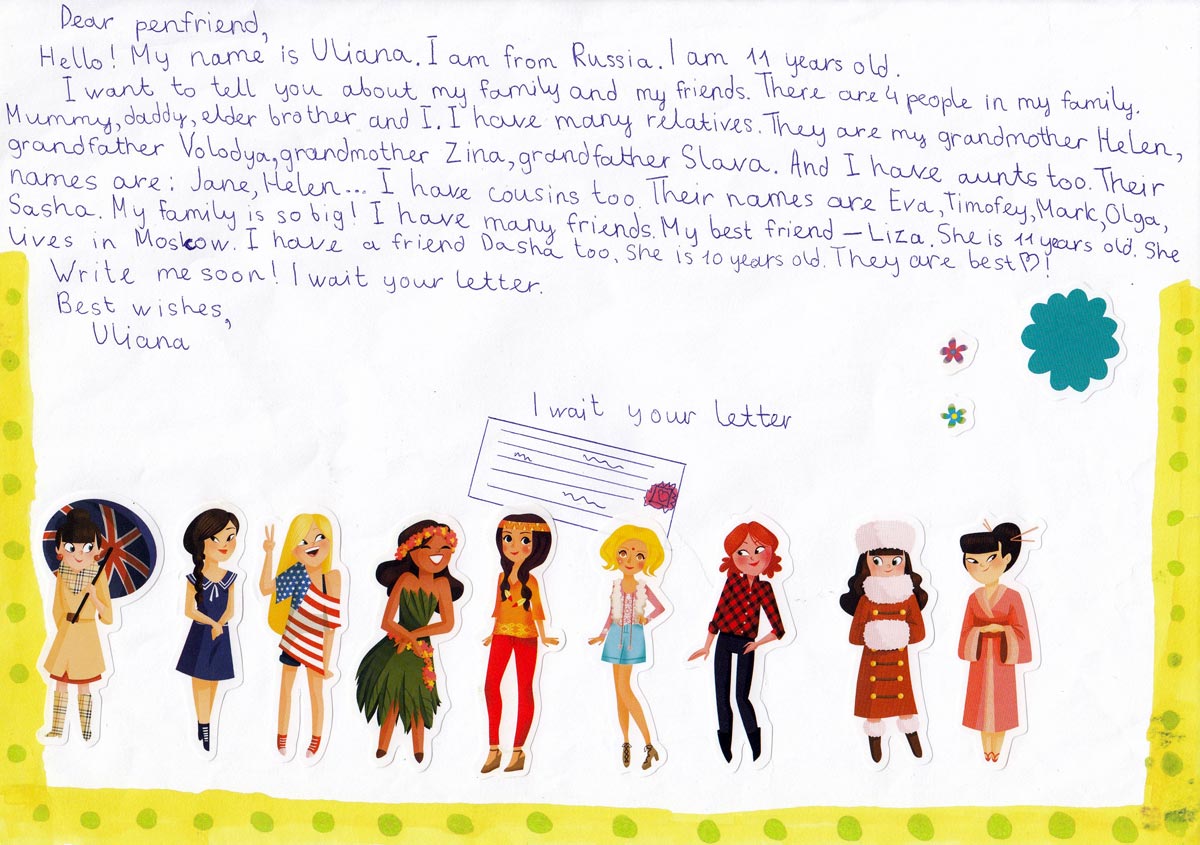 Dear penfriend,
Hello! My name is Uliana. I am from Russia. I am 11 years old.
I want to tell you about my family and my friends. There are 4 people in my family.
Mummy, daddy, elder brother and I. I have many relatives. They are my grandmother Helen,
grandfather Volodya, grandmother Zina, grandfather Slava. And I have aunts too. Their
names are: Jane, Helen... I have cousins too. Their names are Eva, Timofey, Mark, Olga,
Sasha. My family is so big! I have many friends. My best friend – Liza. She is 11 years old. She
lives in Moskow. I have a friend Dasha too. She is 10 years old. They are best ♡!
Write me soon! I wait your letter.
Best wishes,
Uliana
I wait your letter